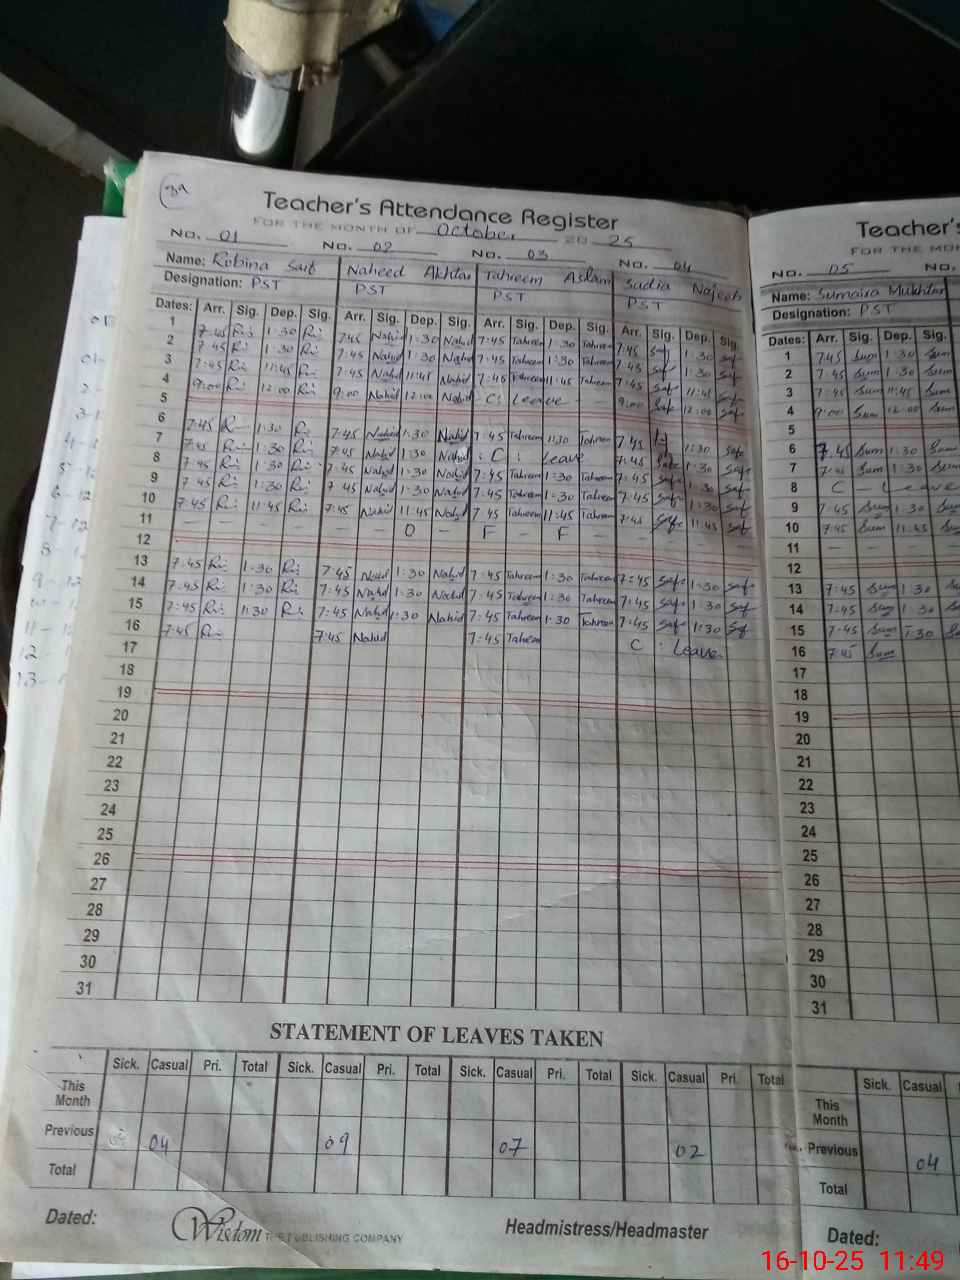 39
Teacher's Attendance Register
FOR THE MONTH OF October 20 25
No. 01 No. 02 No. 03 No. 04
Name: Robina Saif Naheed Akhtar Tahreem Aslam Sadia Najeeb
Designation: PST PST PST PST
Dates: Arr. Sig. Dep. Sig. Arr. Sig. Dep. Sig. Arr. Sig. Dep. Sig. Arr. Sig. Dep. Sig.
1 7:45 1:30 7:45 Nahid 1:30 Nahid 7:45 Tahreem 1:30 Tahreem 7:45 1:30
2 7:45 1:30 7:45 Nahid 1:30 Nahid 7:45 Tahreem 1:30 Tahreem 7:45 1:30
3 7:45 11:45 7:45 Nahid 11:45 Nahid 7:45 Tahreem 11:45 Tahreem 7:45 11:45
4 9:00 12:00 9:00 Nahid 12:00 Nahid C: Leave 9:00 12:00
5
6 7:45 1:30 7:45 Nahid 1:30 Nahid 7:45 Tahreem 1:30 Tahreem 7:45 1:30
7 7:45 1:30 7:45 Nahid 1:30 Nahid C: Leave 7:45 1:30
8 7:45 1:30 7:45 Nahid 1:30 Nahid 7:45 Tahreem 1:30 Tahreem 7:45 1:30
9 7:45 1:30 7:45 Nahid 1:30 Nahid 7:45 Tahreem 1:30 Tahreem 7:45 1:30
10 7:45 11:45 7:45 Nahid 11:45 Nahid 7:45 Tahreem 11:45 Tahreem 7:45 11:45
11 — — — — — O — F — F — — — — —
12
13 7:45 1:30 7:45 Nahid 1:30 Nahid 7:45 Tahreem 1:30 Tahreem 7:45 1:30
14 7:45 1:30 7:45 Nahid 1:30 Nahid 7:45 Tahreem 1:30 Tahreem 7:45 1:30
15 7:45 1:30 7:45 Nahid 1:30 Nahid 7:45 Tahreem 1:30 Tahreem 7:45 1:30
16 7:45 7:45 Nahid 7:45 Tahreem C: Leave
17
18
19
20
21
22
23
24
25
26
27
28
29
30
31
STATEMENT OF LEAVES TAKEN
Sick. Casual Pri. Total Sick. Casual Pri. Total Sick. Casual Pri. Total Sick. Casual Pri. Total
This Month
Previous 04 09 07 02
Total
Dated: Wisdom THE PUBLISHING COMPANY Headmistress/Headmaster
Teacher's
FOR THE MON
No. 05 No.
Name: Sumaira Mukhtar
Designation: PST
Dates: Arr. Sig. Dep. Sig.
1 7:45 Sum 1:30 Sum
2 7:45 Sum 1:30 Sum
3 7:45 Sum 11:45 Sum
4 9:00 Sum 12:00 Sum
5
6 7:45 Sum 1:30 Sum
7 7:45 Sum 1:30 Sum
8 C - Leave
9 7:45 Sum 1:30 Sum
10 7:45 Sum 11:45 Sum
11 — — — —
12
13 7:45 Sum 1:30 Sum
14 7:45 Sum 1:30 Sum
15 7:45 Sum 1:30 Sum
16 7:45 Sum
17
18
19
20
21
22
23
24
25
26
27
28
29
30
31
Sick. Casual
This Month
Previous 04
Total
Dated:
16-10-25 11:49